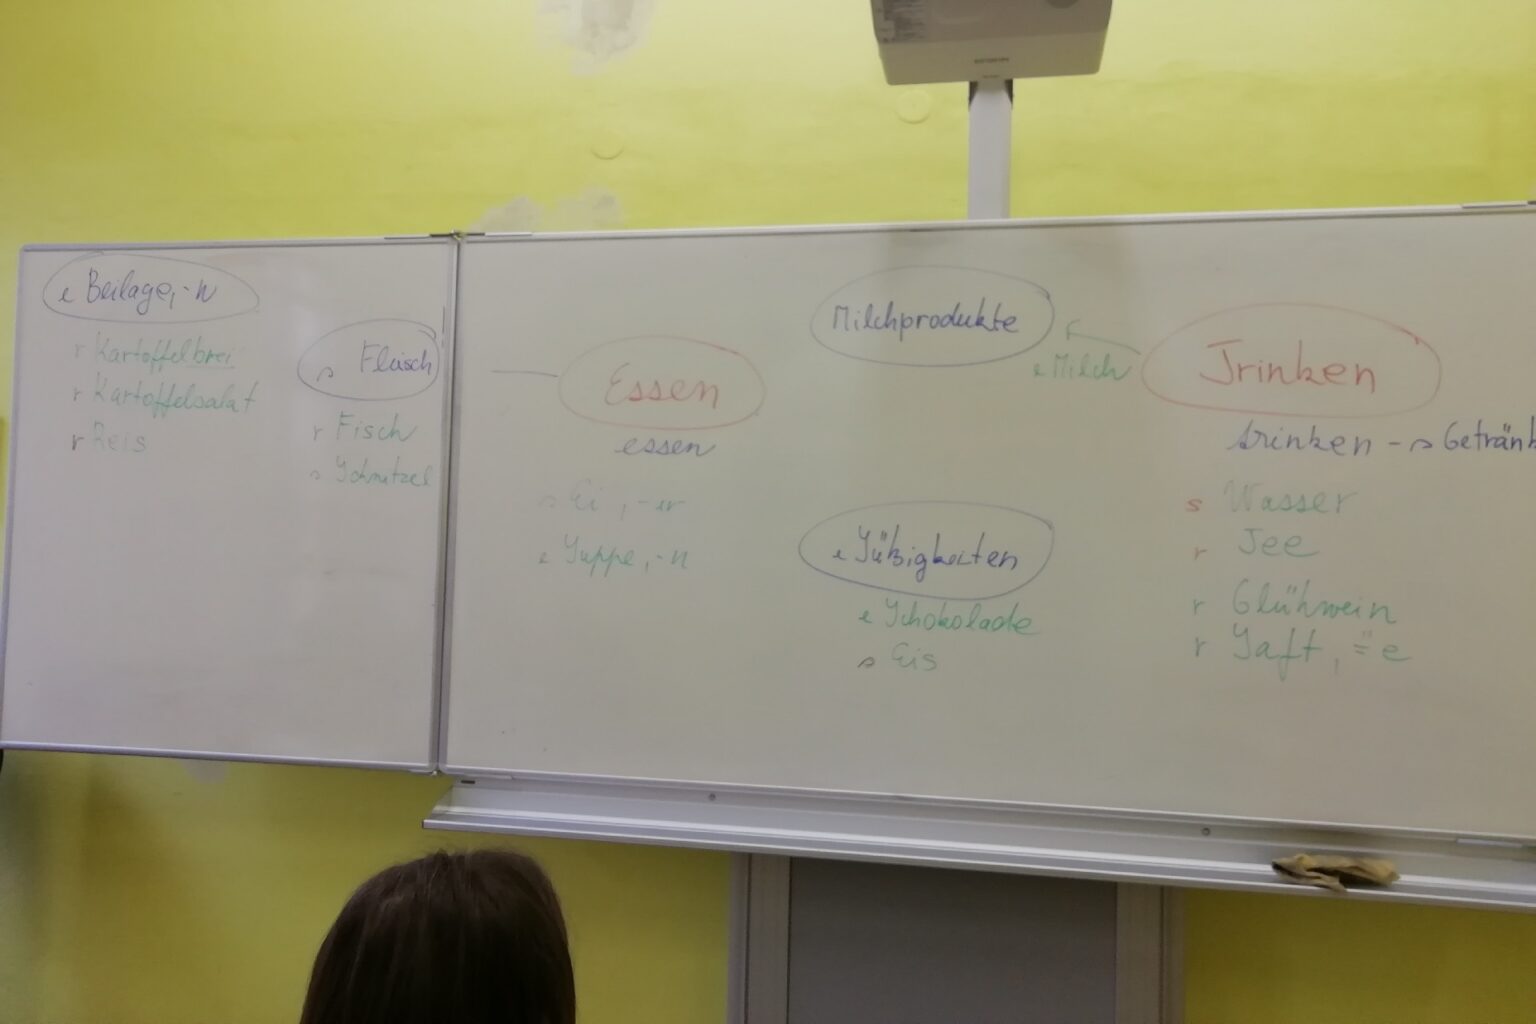 e Beilage, -n
r Kartoffelbrei
r Kartoffelsalat
r Reis
s Fleisch
r Fisch
s Schnitzel
Essen
essen
s Ei, -er
e Suppe, -n
Milchprodukte
e Milch
e Süßigkeiten
e Schokolade
s Eis
Trinken
trinken - s Getränk
s Wasser
r Tee
r Glühwein
r Saft, ¨-e